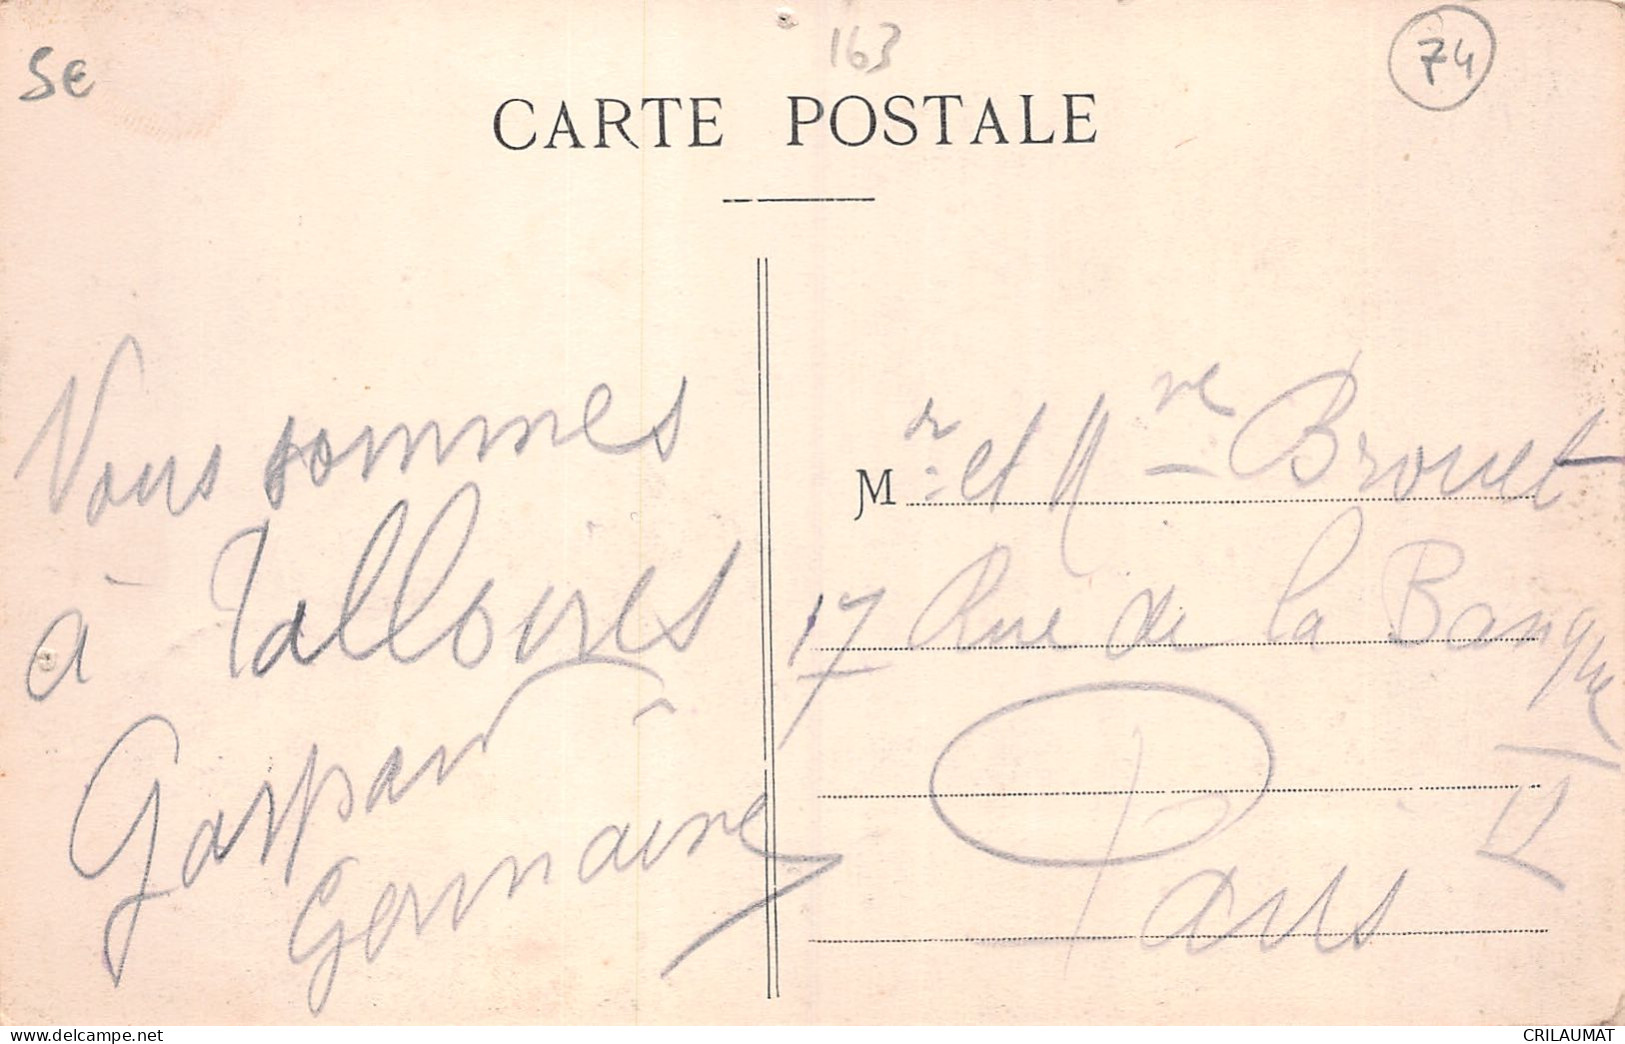 5€
163
74
CARTE POSTALE
Nous sommes
à Talloires
Gaspard
Germaine
Mr et Mme Brouet
17 Rue de la Banque
Paris II
delcampe.net
CRILAUMAT